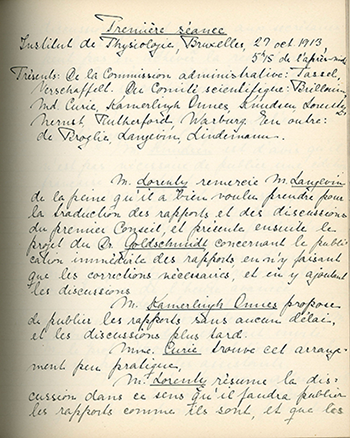 Première séance
Institut de Physiologie, Bruxelles, 27 oct 1913
5 de l'après-midi
Présents: De la Commission administrative: Tassel,
Verschaffelt. Du Comité scientifique: Brillouin,
Md. Curie, Kamerlingh Onnes, Knudsen, Lorentz,
Nernst, Rutherford, Warburg. En outre:
de Broglie, Langevin, Lindemann.
M. Lorentz remercie M. Langevin
de la peine qu'il a bien voulu prendre pour
la traduction des rapports et des discussions
du premier Conseil, et présente ensuite le
projet du Dr Goldschmidt concernant la publi-
cation immédiate des rapports en n'y faisant
que les corrections nécessaires, et en y ajoutant
les discussions.
M. Kamerlingh Onnes propose
de publier les rapports sans aucun délai,
et les discussions plus tard.
Mme. Curie trouve cet arrange-
ment peu pratique.
M. Lorentz résume la dis-
cussion dans ce sens qu'il faudra publier
les rapports comme ils sont, et que les